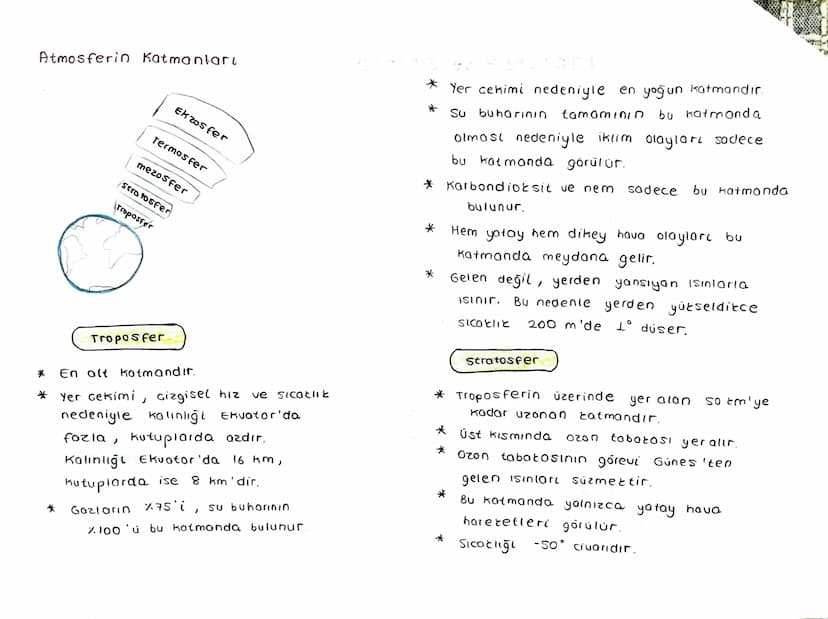 Atmosferin Katmanları
Ekzosfer
Termosfer
mezosfer
Stratosfer
Troposfer
Troposfer
* En alt katmandır.
* Yer cekimi, cizgisel hız ve sıcaklık
nedeniyle kalınlığı Ekvator'da
fazla, kutuplarda azdır.
Kalınlığı Ekvator'da 16 km,
kutuplarda ise 8 km'dir.
* Gazların %75'i, su buharının
%100'ü bu katmanda bulunur.
* Yer cekimi nedeniyle en yoğun katmandır.
* Su buharının tamamının bu katmanda
olması nedeniyle iklim olayları sadece
bu katmanda görülür.
* Karbondioksit ve nem sadece bu katmanda
bulunur.
* Hem yatay hem dikey hava olayları bu
katmanda meydana gelir.
* Gelen değil, yerden yansıyan ısınlarla
ısınır. Bu nedenle yerden yükseldikce
sıcaklık 200 m'de 1° düser.
Stratosfer
* Troposferin üzerinde yer alan 50 km'ye
kadar uzanan katmandır.
* Üst kısmında ozon tabakası yer alır.
* Ozon tabakasının görevi Günes'ten
gelen ısınları süzmektir.
* Bu katmanda yalnızca yatay hava
hareketleri görülür.
* Sıcaklığı -50° civarıdır.